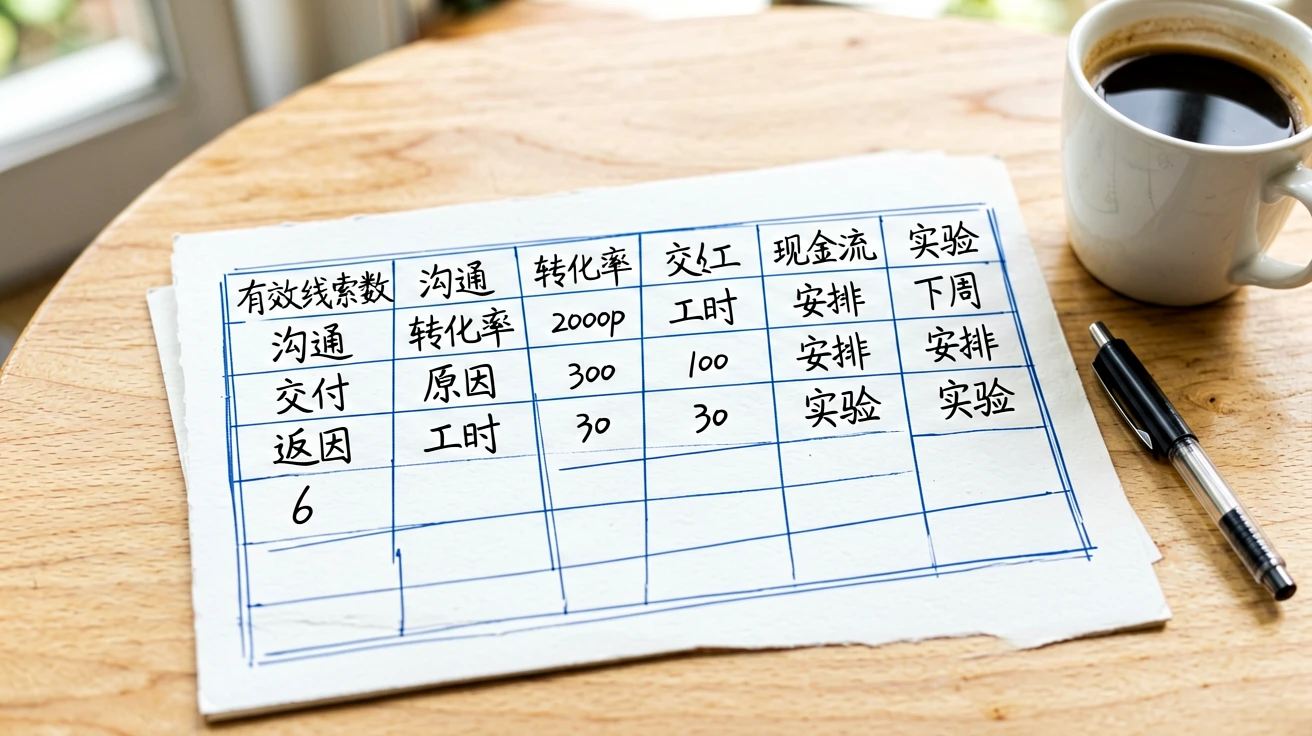 有效线索数 沟通 转化率 现金流 实验
沟通 转化率 2000p 工时 安排 下周
交付 原因 300 100 安排 安排
返因 工时 30 30 实验 实验
6